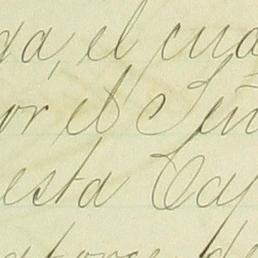 da, el cua
or el Señ
esta Cap